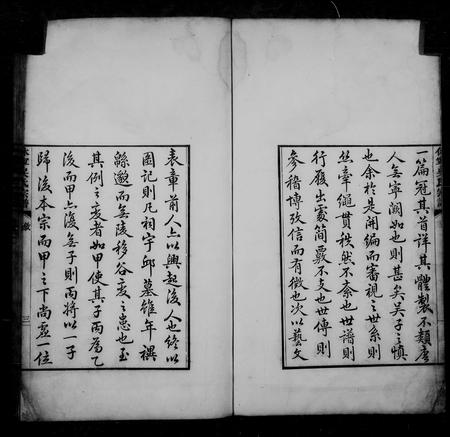 一篇冠其首詳其體製不類唐
人無寧闕如也則甚矣夫子之慎
也余於是開編而審視之世系則
絲牽繩貫秩然不紊也世譜則
行履出處簡覈不支也世傳則
參稽博攷信而有徵也次以藝文
表章前人亦以興起後人也終以
圖記則凡祠宇邱墓雖年禩
綿邈而無陵移谷變之患也至
其例之變者如甲使其子丙為乙
後而甲亦復無子則丙將以一子
歸後本宗而甲之下尚虛一位